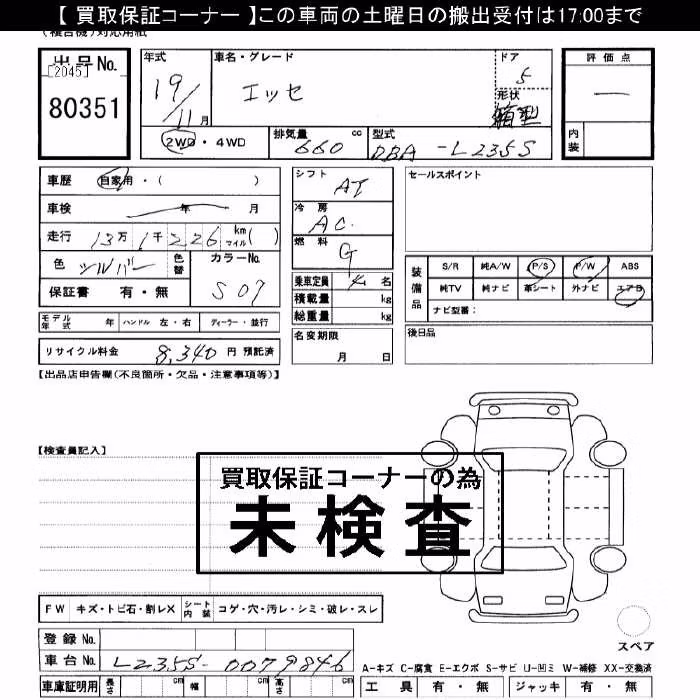 【 買取保証コーナー 】この車両の土曜日の搬出受付は17:00まで
(複合機)対応用紙
出品No.
[2045]
80351
年式 車名・グレード ドア 評価点
19/11月 エッセ 5 ー
形状
箱型
2WD・4WD 排気量 660 cc 型式 DBA-L235S 内装
車歴 自家用・( )
車検 年 月
走行 13万1千226 km マイル( )
色 シルバー 色替 カラーNo. S07
保証書 有・無
モデル年式 年 ハンドル 左・右 ディーラー・並行
リサイクル料金 8,340 円 預託済
シフト AT
冷房 AC.
燃料 G
乗車定員 4 名
積載量 kg
総重量 kg
名変期限
月 日
セールスポイント
装備品 S/R 純A/W P/S P/W ABS
純TV 純ナビ 革シート 外ナビ エアB
ナビ型番：
後日品
【出品店申告欄(不良箇所・欠品・注意事項等)】
【検査員記入】
買取保証コーナーの為
未検査
FW キズ・トビ石・割レX シート内装 コゲ・穴・汚レ・シミ・破レ・スレ
スペア
登録No.
車台No. L235S-0079846
A-キズ C-腐食 E-エクボ S-サビ U-凹ミ W-補修 XX-交換済
車庫証明用 長さ cm 幅 cm 高さ cm 工具 有・無 ジャッキ 有・無